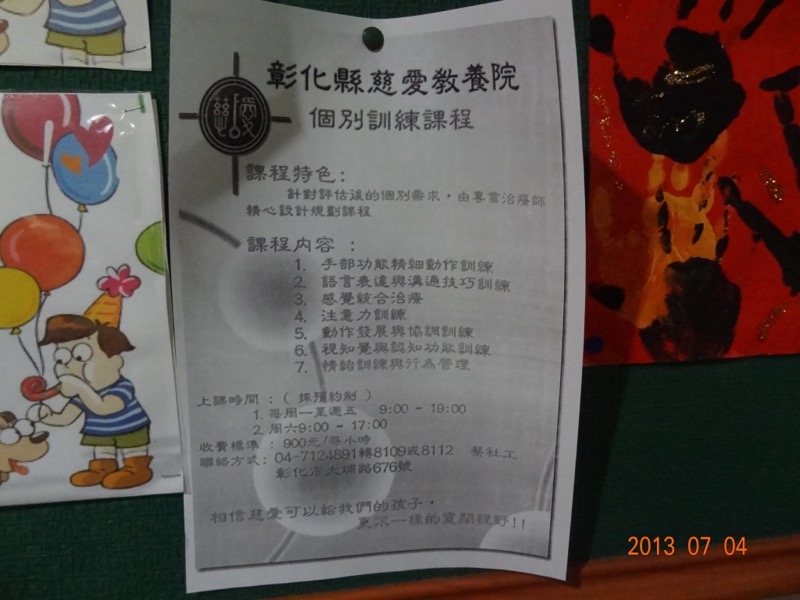 彰化縣慈愛教養院
慈愛
個別訓練課程
課程特色:
針對評估後的個別需求,由專業治療師
精心設計規劃課程
課程內容 :
1. 手部功能精細動作訓練
2. 語言表達與溝通技巧訓練
3. 感覺統合治療
4. 注意力訓練
5. 動作發展與協調訓練
6. 視知覺與認知功能訓練
7. 情緒訓練與行為管理
上課時間 : ( 採預約制 )
1. 每周一至週五 9:00 ~ 19:00
2. 周六9:00 ~ 17:00
收費標準 : 900元/每小時
聯絡方式: 04-7124891轉8109或8112 社工
彰化市大埔路676號
相信慈愛可以給我們的孩子,
更不一樣的寬闊視野!!
2013 07 04